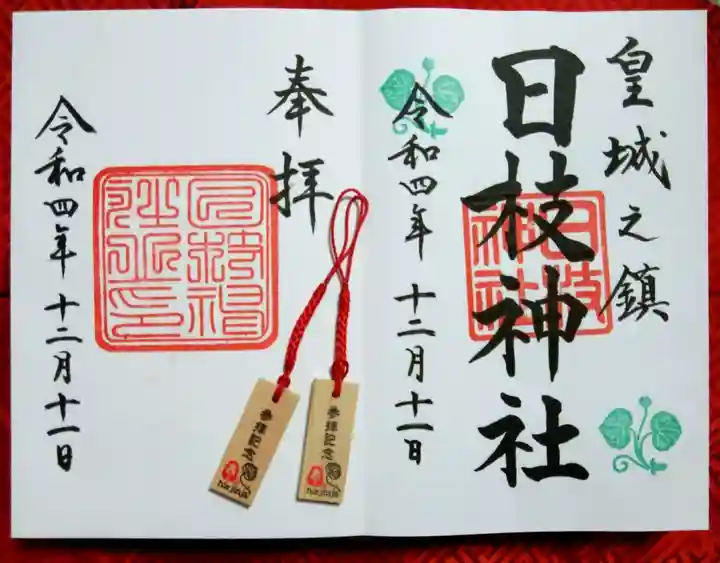 皇城之鎮
日枝神社
日枝
神社
令和四年 十二月十一日
奉拝
令和四年 十二月十一日
参拝記念
参拝記念